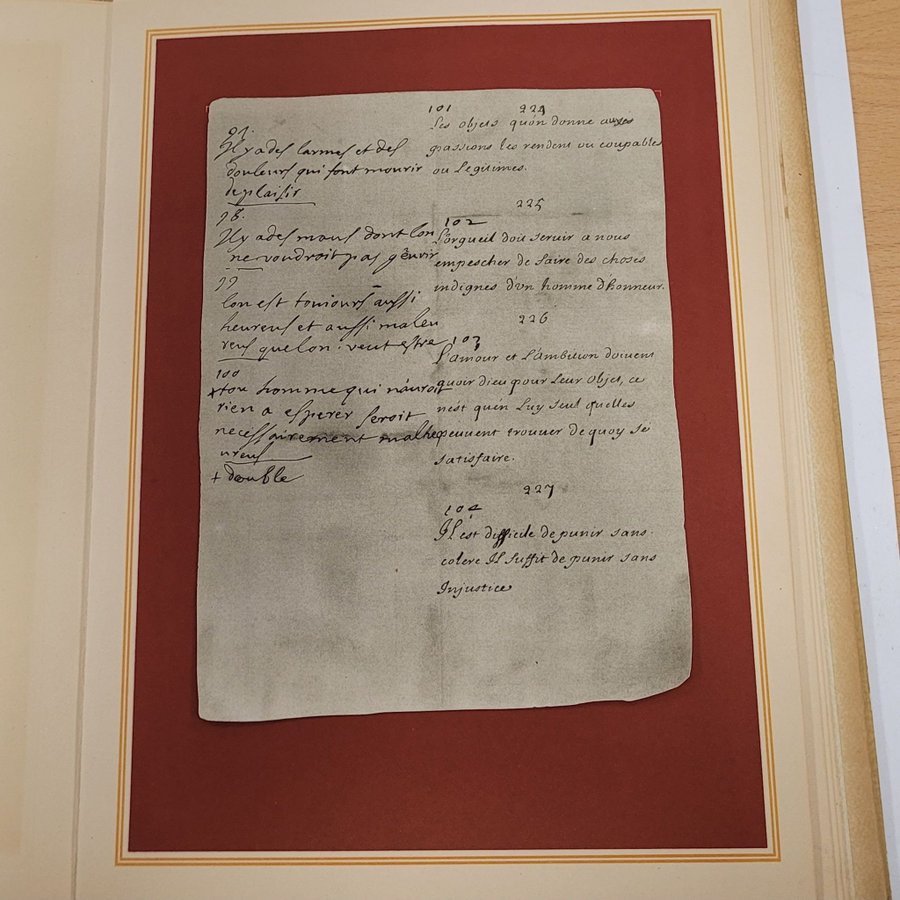 97.
Il y a des larmes et des
douleurs qui font mourir
de plaisir
98.
Il y a des maus dont lon
ne voudroit pas guerir
99
lon est toujours aussi
heureus et aussi maleu
reus que lon veut estre
100
+ tou homme qui nauroit
rien a esperer seroit
necessairement malhe
ureus
+ double
101 224
Les objets qu'on donne aux
passions les rendent ou coupables
ou Legitimes.
225
102
L'orgueil doit servir a nous
empescher de faire des choses
indignes d'un homme d'honneur.
226
103
L'amour et L'ambition doivent
avoir dieu pour Leur Objet, ce
n'est qu'en Luy seul qu'elles
peuvent trouver de quoy se
satisfaire.
227
104
Il est difficile de punir sans
colere Il suffit de punir sans
Injustice